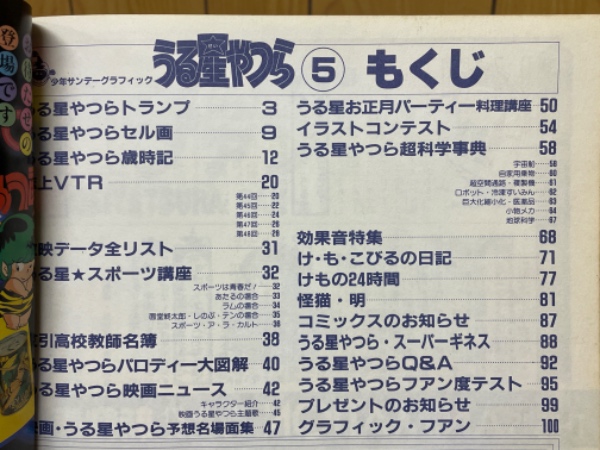 お待たせの
登場です
少年サンデーグラフィック うる星やつら ⑤ もくじ
る星やつらトランプ 3
る星やつらセル画 9
る星やつら歳時記 12
上VTR 20
第44回 20
第45回 22
第46回 24
第47回 26
第48回 28
映データ全リスト 31
る星★スポーツ講座 32
スポーツは青春だ! 32
あたるの場合 33
ラムの場合 34
面堂終太郎・しのぶ・テンの場合 35
スポーツ・ア・ラ・カルト 36
引高校教師名簿 38
る星やつらパロディー大図解 40
る星やつら映画ニュース 42
キャラクター紹介 42
映画うる星やつら主題歌 45
画・うる星やつら予想名場面集 47
うる星お正月パーティー料理講座 50
イラストコンテスト 54
うる星やつら超科学事典 58
宇宙船 58
自家用乗物 60
超空間通路・複製機 61
ロボット・冷凍すいみん 62
巨大化縮小化・医薬品 63
小物メカ 64
地球科学 67
効果音特集 68
け・も・こびるの日記 71
けもの24時間 77
怪猫・明 81
コミックスのお知らせ 87
うる星やつら・スーパーギネス 88
うる星やつらQ&A 92
うる星やつらフアン度テスト 95
プレゼントのお知らせ 99
グラフィック・フアン 100